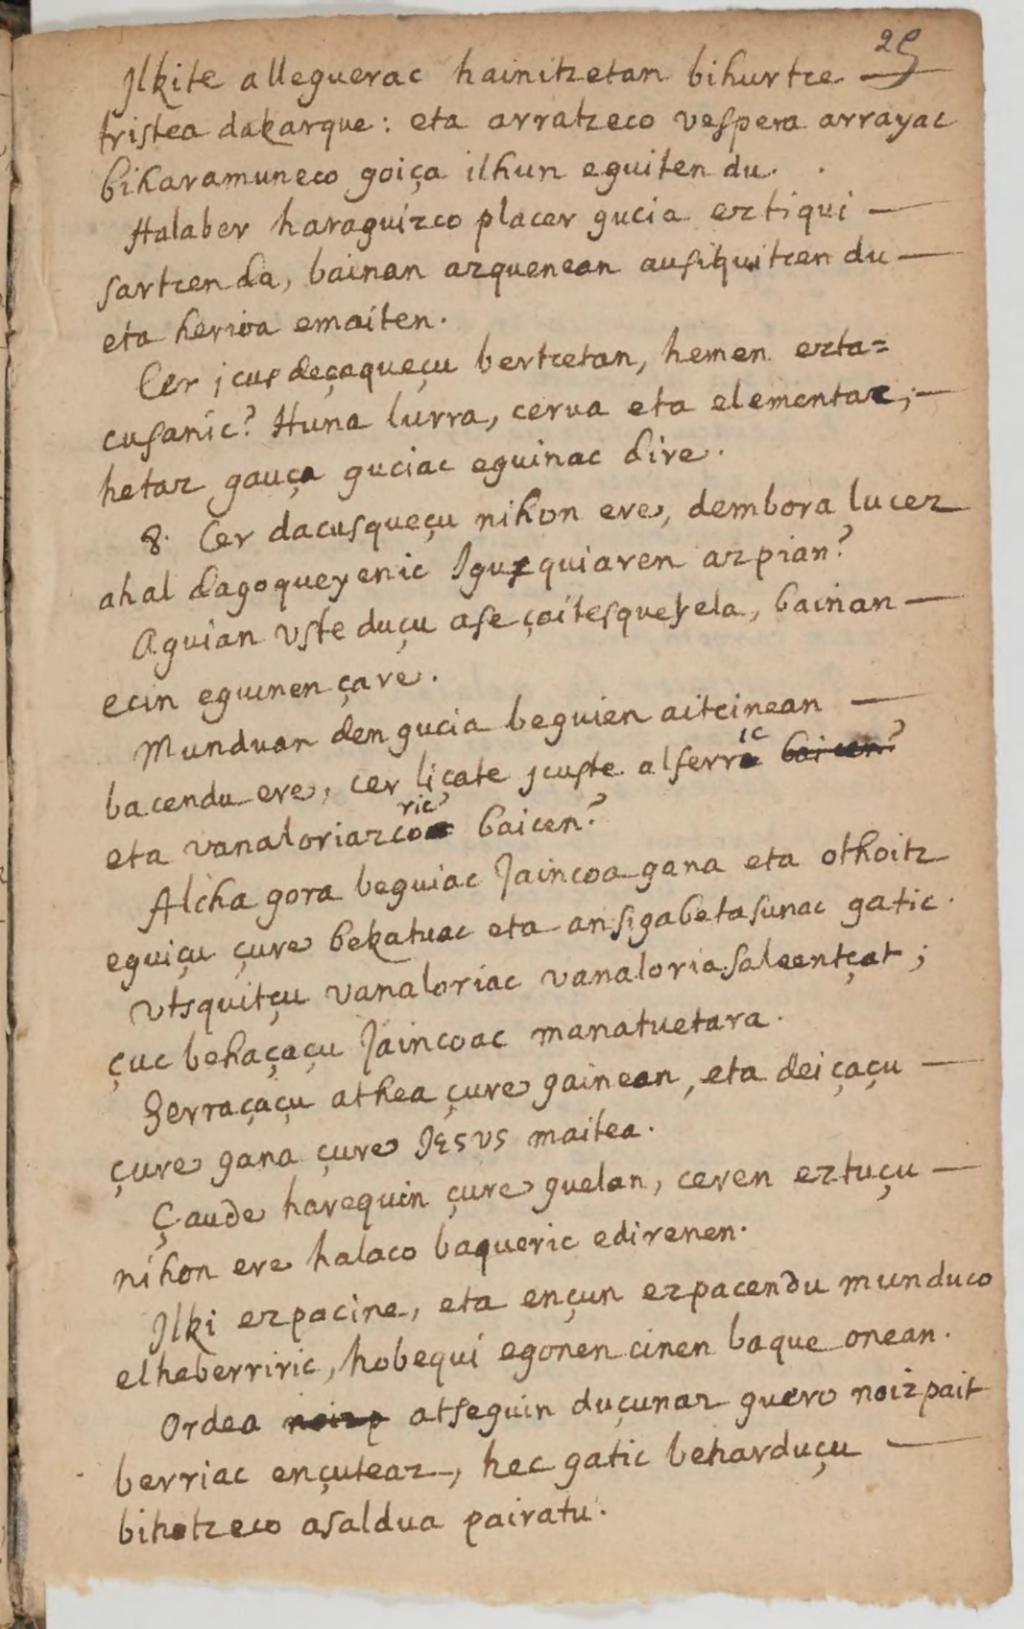 29
Ilkite alleguerac hainitzetan bihurtze —
tristea dakarque: eta arratzeco vespera arrayac
biharamuneco goiça ilhun eguiten du.
Halaber haraguizco placer gucia eztiqui —
sartcen da, bainan azquenean ausiquitcen du —
eta herioa emaiten.
Cer jcus deçaqueçu bertcetan, hemen ezta=
cusanic? Huna lurra, cerua eta elementac, —
hetaz gauça guciac eguinac dire.
8. Cer dacusqueçu nihon ere, dembora lucez
ahal dagoqueyenic Iguzquiaren azpian?
Aguian vste duçu ase çaitesquesela, bainan —
ecin eguinen çare.
Munduan den gucia beguien aitcinean —
bacendu ere, cer liçate jcuste alferric baicen?
eta vanaloriazcoric baicen?
Alcha gora beguiac Jaincoa gana eta othoitz
eguiçu çure bekatuac eta ansigabetasunac gatic.
Vtsquitçu vanaloriac vanaloriasaleentçat;
çuc behaçaçu Jaincoac manatuetara.
Zerraçaçu athea çure gainean, eta deiçaçu —
çure gana çure JESVS maitea.
Çaude harequin çure guelan, ceren eztuçu —
nihon ere halaco baqueric edirenen.
Ilki ezpacine, eta ençun ezpacendu munduco
elheberriric, hobequi egonen cinen baque onean.
Ordea noizp atseguin duçunaz guero noizpait
berriac ençuteaz, hec gatic beharduçu —
bihotzeco asaldua pairatu.